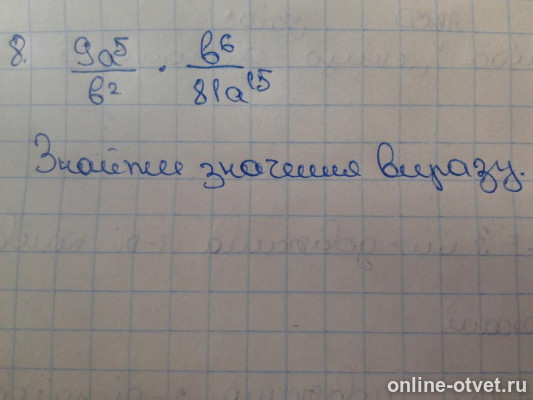 8. 9a⁵/b² · b⁶/81a¹⁵
Знайти значення виразу.
online-otvet.ru